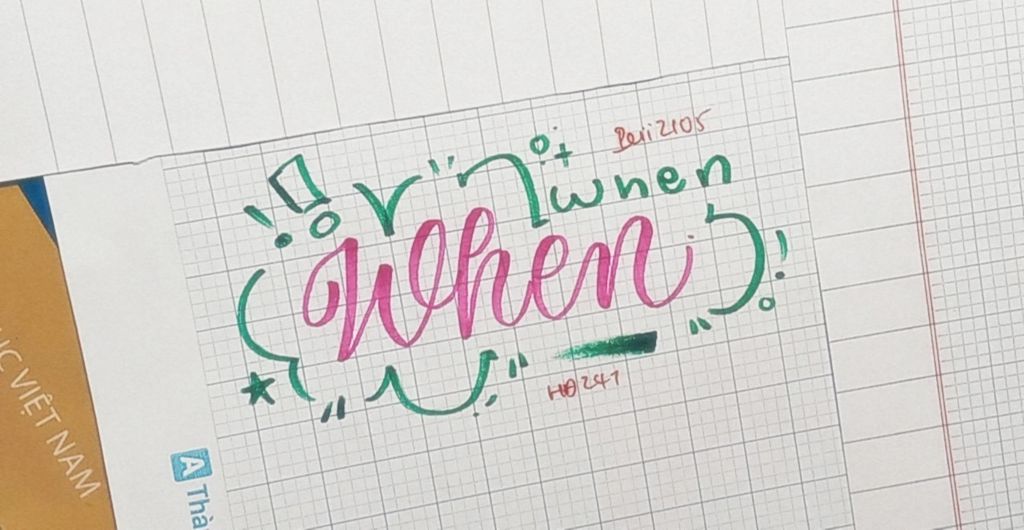 Peri2105
when
When
HĐ247
ỤC VIỆT NAM
A Thà